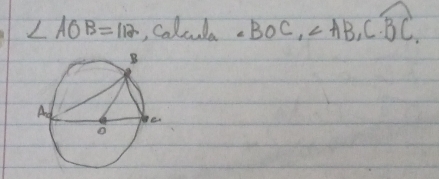 ∠ AOB = 112, calcula ∠BOC, ∠ AB,C. BC.
B
A
O
C